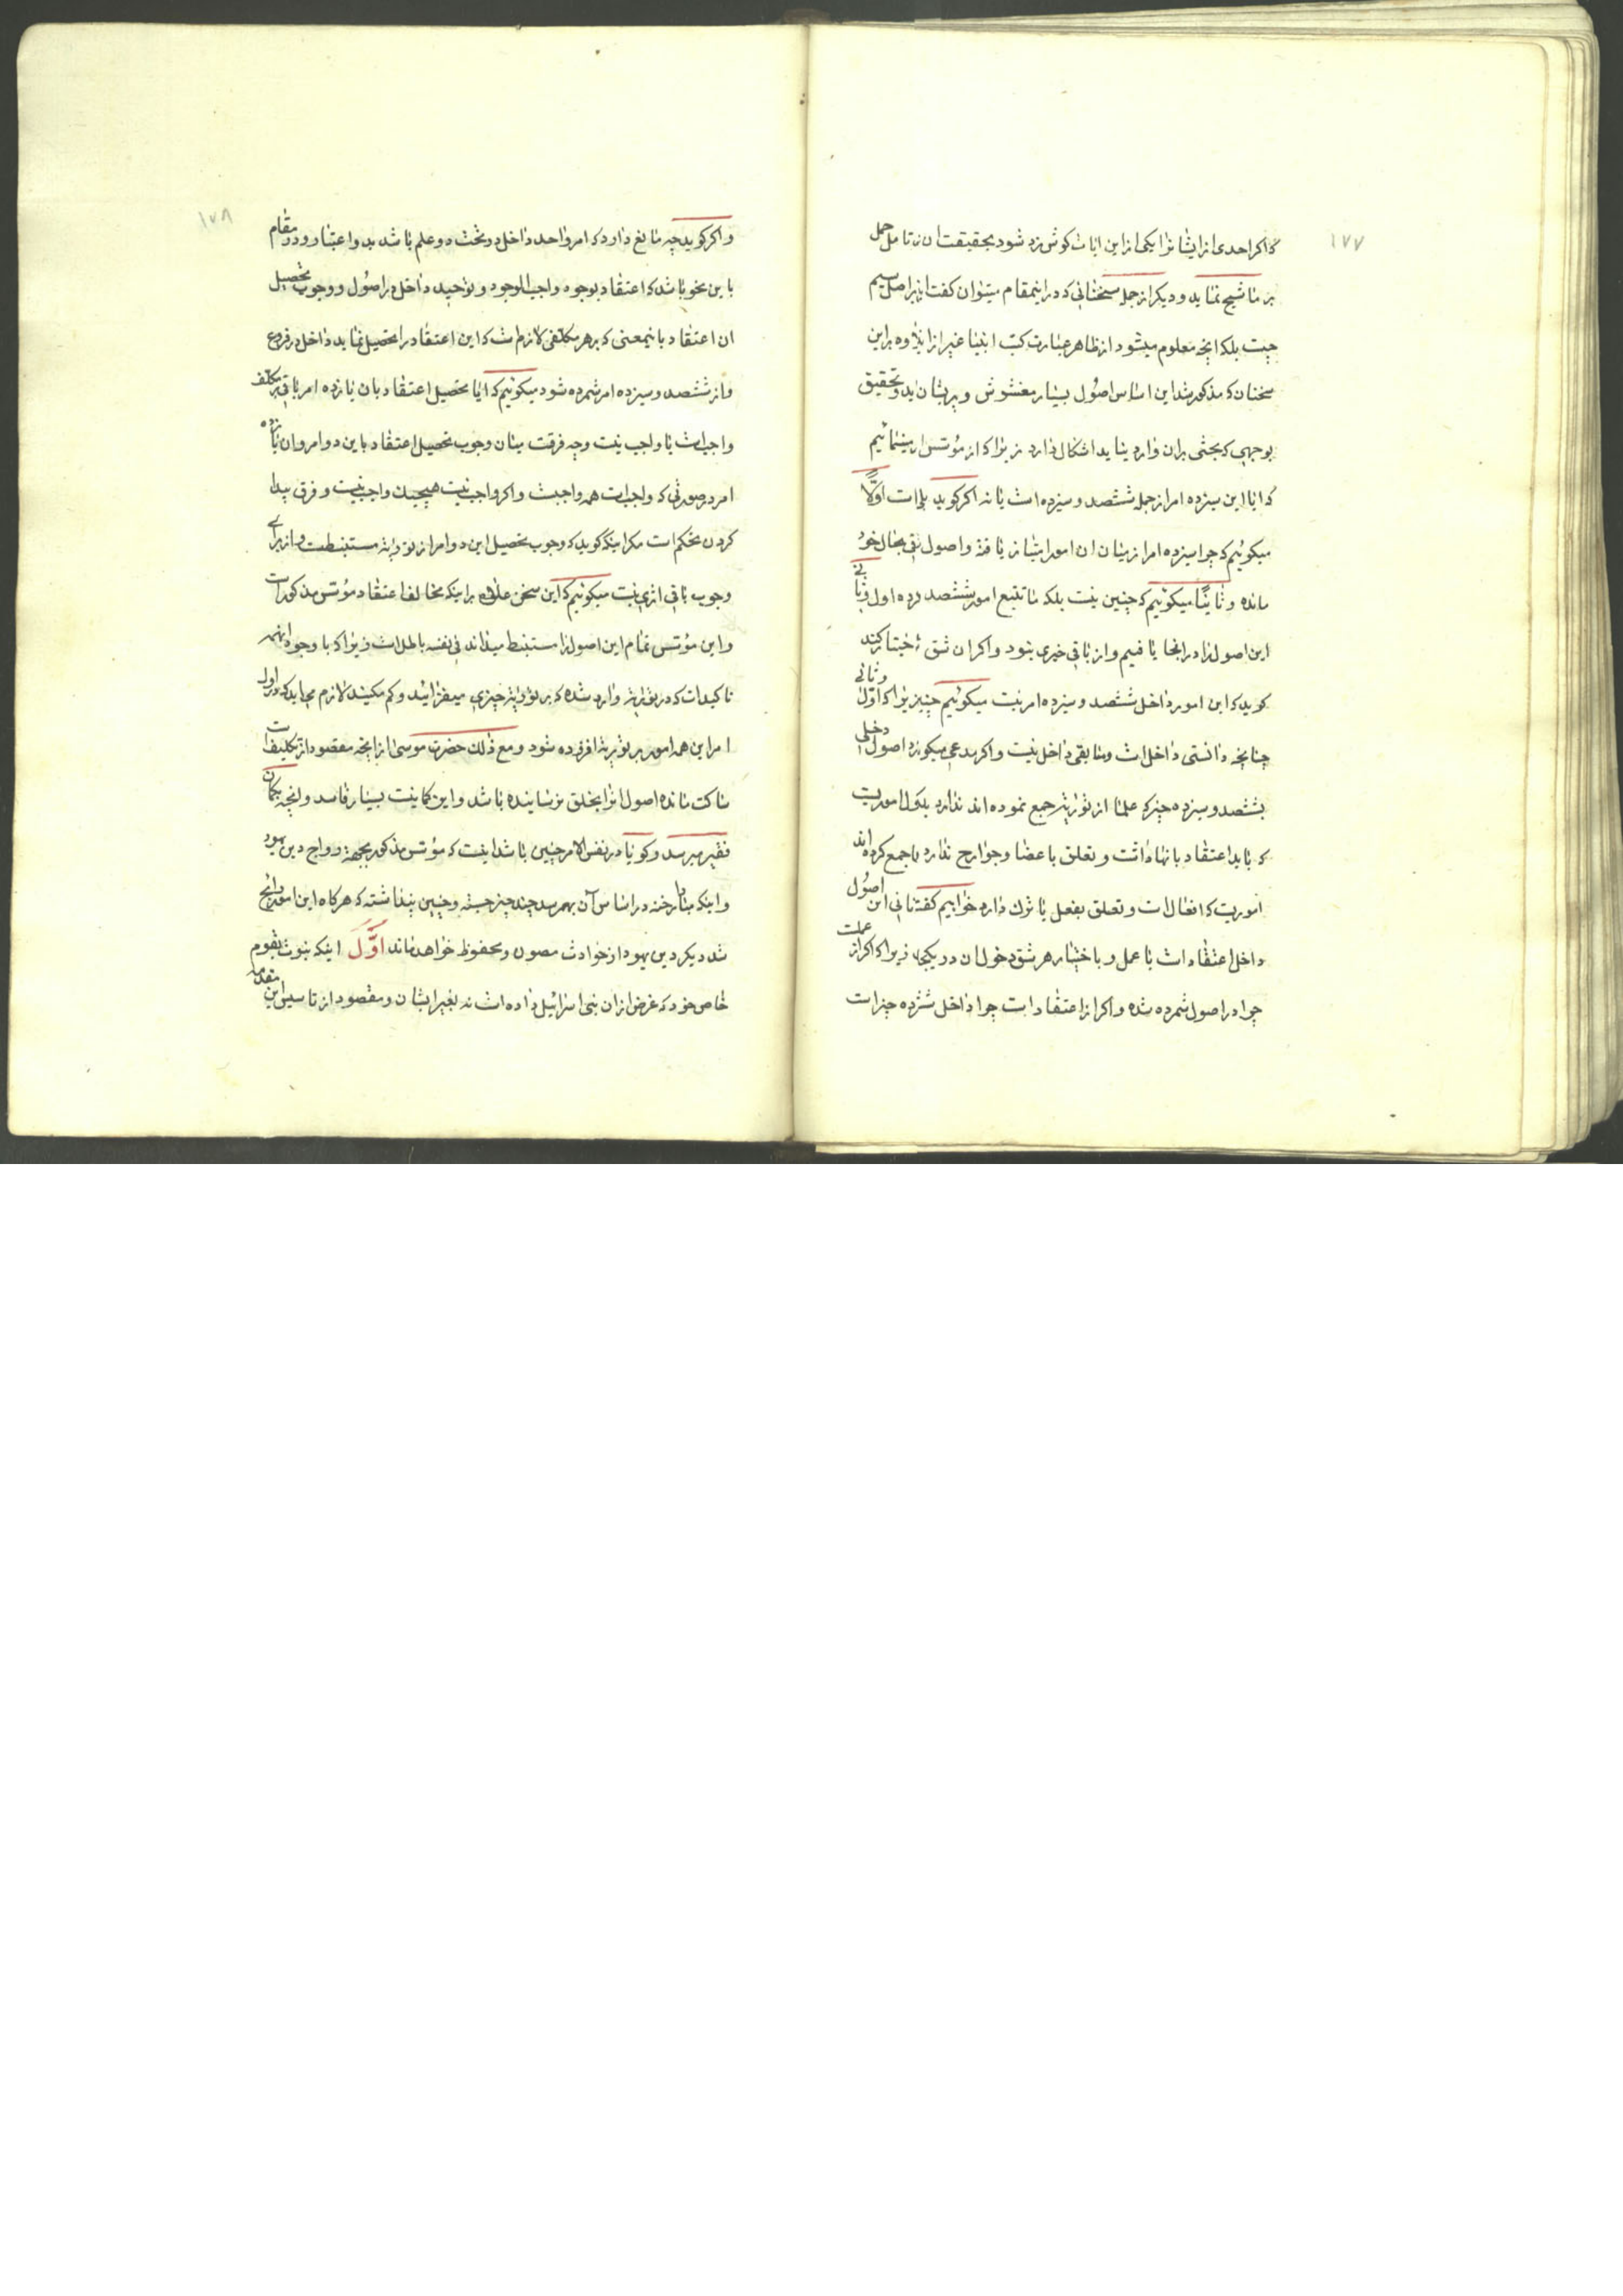 ۱۷۷
که اکر احدی از ایشانرا یکی از این ایات کوش زد شود بحقیقت ان نتامل حمل
بر ماشیح نماید و دیکر از جمله سخنانی که در اینمقام میتوان کفت
چیست بلکه انچه معلوم میشود از ظاهر عبارت کتب انبیا غیر از اینها علاوه بر این
سخنان که مذکور شد این اساس اصول بسیار مغشوش و پریشان بد و تحقیق
بوجهی که بحثی بران وارد نیاید اشکال دارد زیرا که از مؤسس میپرسیم
که ایا این سیزده امر از جمله ششصد و سیزده است یا نه اکر کوید بلی است اولاً
میکوئیم که چرا سیزده امر از میان ان امور امتیاز یافته و اصول باقی بحال خود
مانده و ثانیاً میکوئیم که چنین نیست بلکه ما تتبع امور ششصد کرده اول و ثانی
این اصول را در انجا یافتیم و از باقی خبری نبود و اکر ان شق اختیار کند
کوید که این امور داخل ششصد و سیزده امر نیست میکوئیم چنین زیرا که اول و ثانی
چنانچه دانستی داخل است و مابقی داخل نیست و اکر مدعی میکوید اصول دخلی
بششصد و سیزده چیز که علما از توریة جمع نموده اند ندارد بلکه اموریست
که باید اعتقاد بانها داشت و تعلق باعضا و جوارح ندارد ما جمع کرده اند
اموریست که افعال است و تعلق بفعل یا ترک دارد خواهیم کفت ثانی این اصول
داخل اعتقاد است یا عمل و باختیار هر شق دخول ان در یکجا زیرا که اکر از عملست
چرا در اصول شمرده شده و اکر از اعتقاد است چرا داخل ششصد و سیزده چیز است
۱۷۸
و اکر کوید چه مانع دارد که امر واحد داخل در تحت ده و علم باشد بدو اعتبار و در مقام
باین نحو باشد که اعتقاد بوجود واجب الوجود و توحید داخل در اصول و وجوب تحصیل
ان اعتقاد باینمعنی که بر هر مکلفی لازم است که این اعتقاد را تحصیل نماید داخل در فروع
و از ششصد و سیزده امر شمرده شود میکوئیم که ایا تحصیل اعتقاد بان یازده امر باقی بر مکلف
واجبست یا واجب نیست وجه فرقت میان وجوب تحصیل اعتقاد باین دو امر و ان یازده
امر در صورتی که واجبست همه واجبست و اکر واجب نیست هیچیک واجب نیست و فرق پیدا
کردن تحکم است مکر اینکه کوید که وجوب تحصیل این دو امر از توریة مستنبطست و از برای
وجوب باقی اثری نیست میکوئیم که این سخن علاوه بر اینکه مخالف اعتقاد مؤسس مذکور است
و این مؤسس تمام این اصول را مستنبط میداند فی نفسه باطل است زیرا که با وجود اینهمه
تاکیدات که در توریة وارد شده که بر توریة چیزی میفزائید و کم مکنید لازم می اید که
امر این همه امور بر توریة افزوده شود و مع ذلک حضرت موسی از انچه مقصود از تکلیفات
ساکت مانده اصول انرا بخلق نرسانیده باشد و این کمانیت بسیار فاسد و انچه بکمان
فقیر میرسد و کویا در نفس الامر چنین باشد اینست که مؤسس مذکور بجهة رواج دین یهود
و اینکه مبادا رخنه در اساس آن بهمرسد چند چیز جسته و چنین پنداشته که هرکاه این امور رایج
شد دیکر دین یهود از حوادث مصون و محفوظ خواهد ماند اوّل اینکه نبوت بقوم
خاص خود که غرض از ان بنی اسرائیل داده است نه بغیر ایشان و مقصود از تاسیس این مقدمه